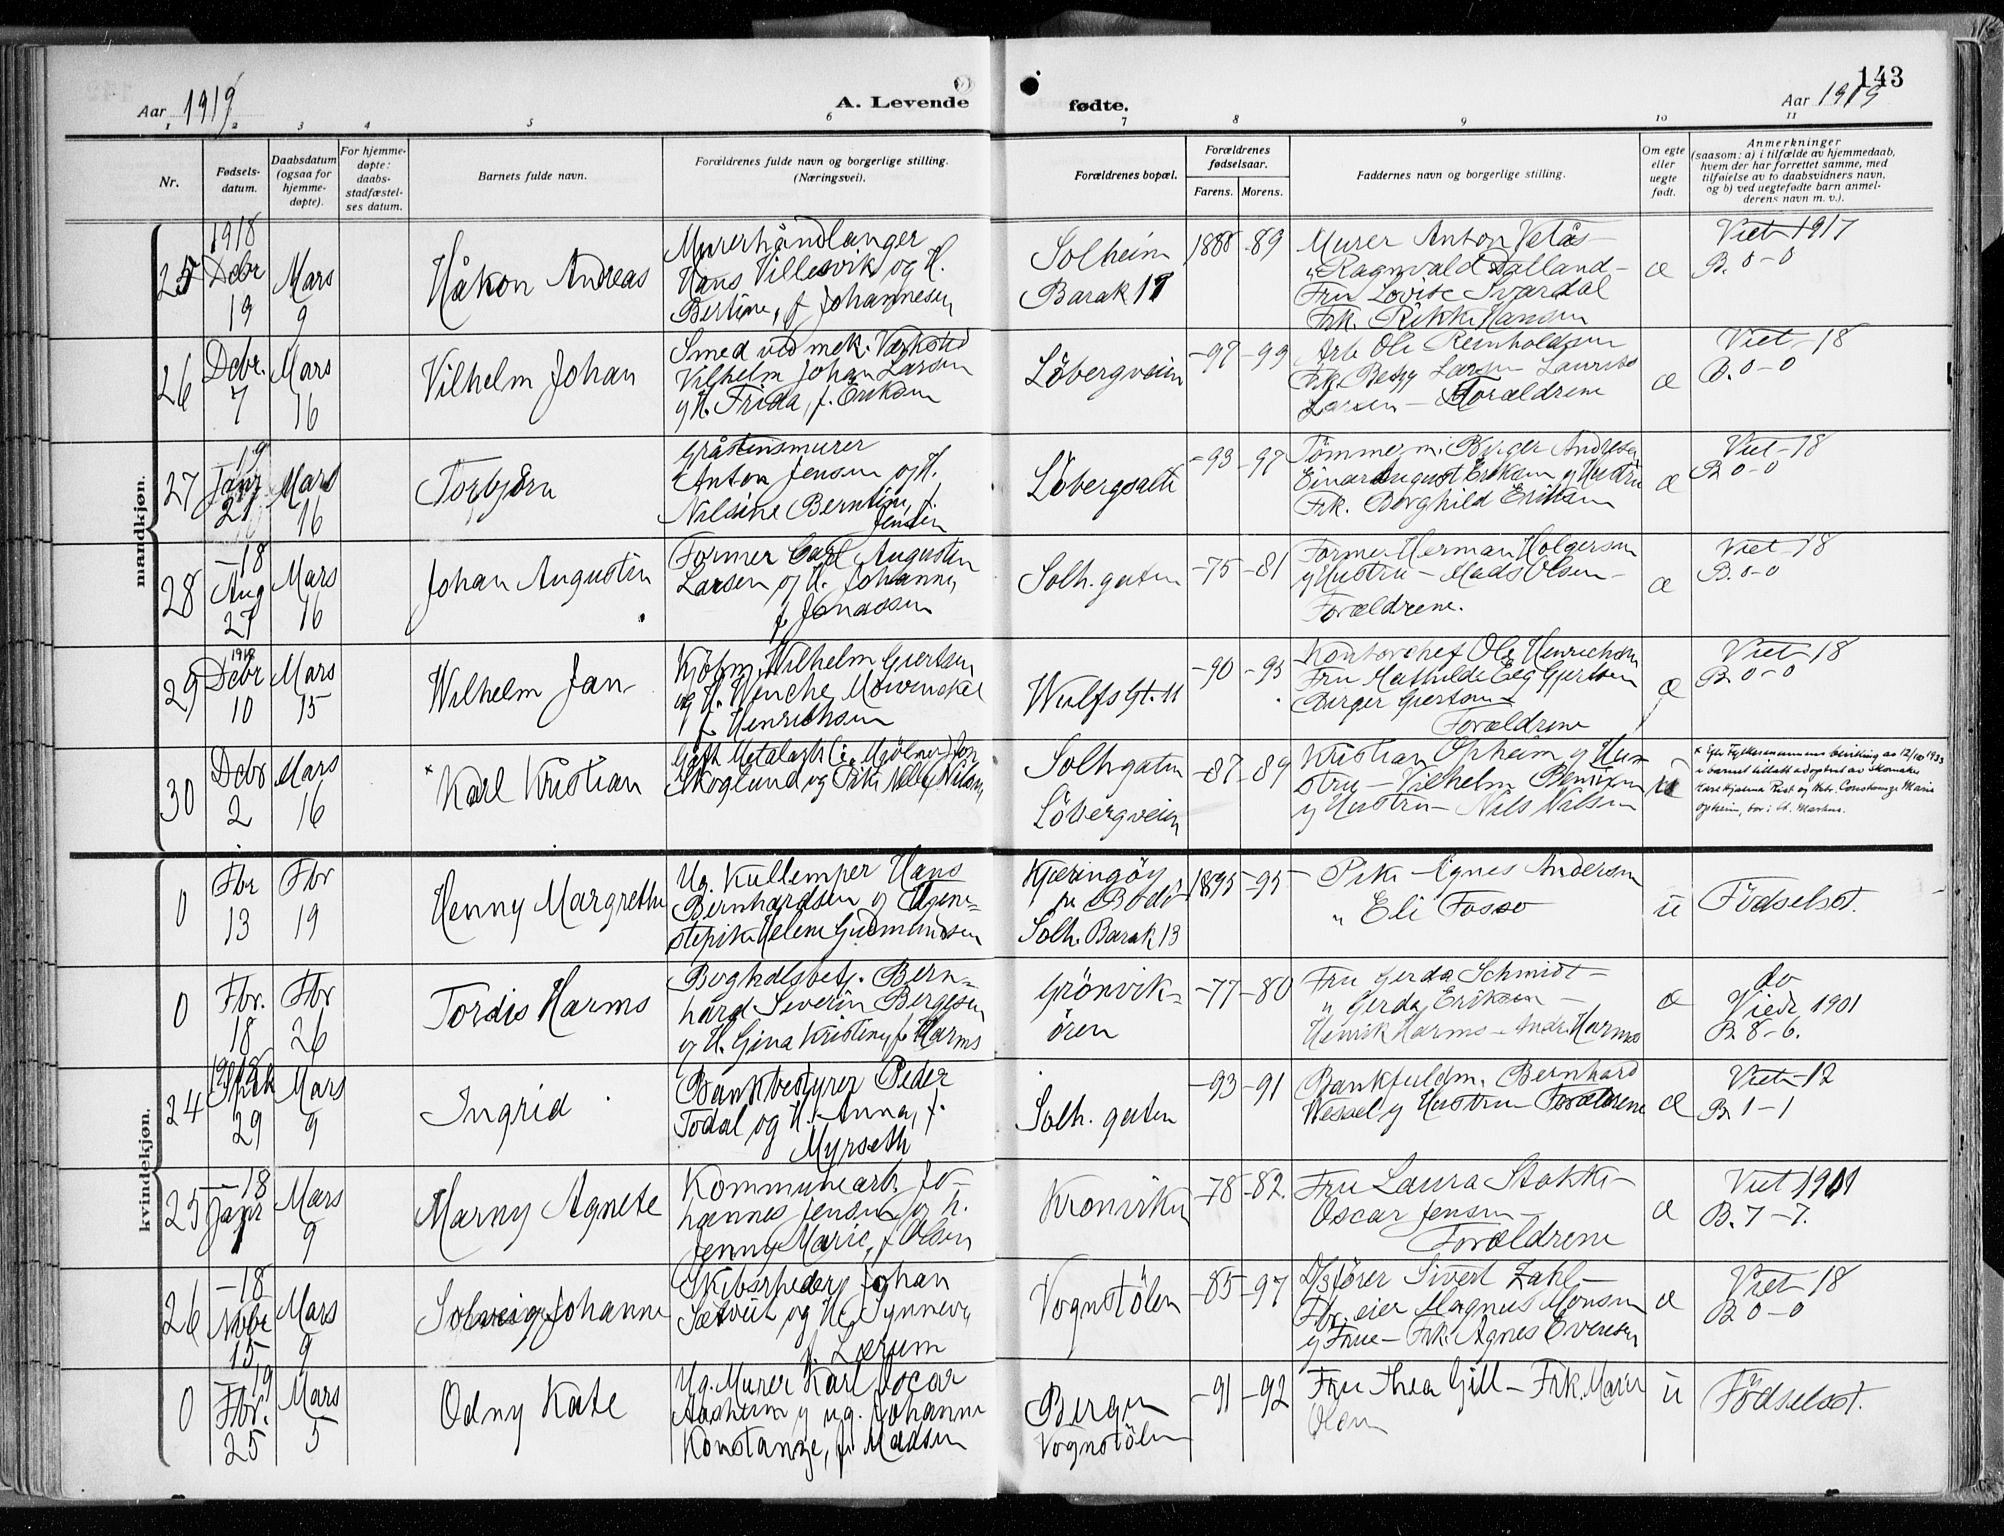 143
Aar 1919
A. Levende
fødte.
Aar 1919
1 2 3 4 5 6 7 8 9 10 11
Nr.
Fødsels-
datum.
Daabsdatum
(ogsaa for
hjemme-
døpte).
For hjemme-
døpte:
daabs-
stadfæstel-
ses datum.
Barnets fulde navn.
Forældrenes fulde navn og borgerlige stilling.
(Næringsvei).
Forældrenes bopæl.
Forældrenes
fødselsaar.
Farens. Morens.
Faddernes navn og borgerlige stilling.
Om egte
eller
uegte
født.
Anmerkninger
(saasom: a) i tilfælde av hjemmedaab,
hvem der har forrettet samme, med
tilføielse av to daabsvidners navn,
og b) ved uegtefødte barn anmel-
derens navn m. v.).
mandkjøn.
25
1918
Decbr
19
Mars
9
Håkon Andreas
Murerhåndlanger
Hans Villesvik og H.
Bertine, f. Johannesen
Solheim
Barak 17
1888 -89
Murer Anton Vetås-
" Ragnvald Dalland-
Fru Lovise Svardal
Frk. Rikke Hansen
æ
Viet 1917
B. 0-0
26
Dcbr.
7
Mars
16
Vilhelm Johan
Smed ved mek. Værksted
Vilhelm Johan Larsen
og H. Frida, f. Eriksen
Löbergveien
-97 -99
Arb. Ole Reinholdsen
Frk. Betzy Larsen
Larsen - Forældrene
æ
Viet -18
B. 0-0
27
19
Janr
21
Mars
16
Torbjørn
Gråstensmurer
Anton Jensen og H.
Nilsine Berntine, f.
Jensen
Löbergsalle
-93 -97
Tömmerm. Birger Andersen
Einar August Eriksen og Hustru
Frk. Borghild Eriksen
æ
Viet -18
B. 0-0
28
-18
Aug
27
Mars
16
Johan Augustin
Former Carl Augustin
Larsen og H. Johanne,
f. Jonassen
Solh. gaten
-75 -81
Former Herman Holgersen
og Hustru - Mads Olsen -
Forældrene.
æ
Viet -18
B. 0-0
29
1918
Dcbr
10
Mars
15
Wilhelm Jan
Kjöbm. Wilhelm Gjertsen
og H. Wenche Mowinckel
f. Henrichsen
Wulfsgt. 11
-90 -95
Kontorchef Ole Henrichsen
Fru Mathilde Eeg Gjertsen
Birger Gjertsen
Forældrene
æ
Viet -18
B. 0-0
30
Dcbr
2
Mars
16
* Karl Kristian
Skoglund og Pike Nelly Nilsen
Solhgaten
Löbergveien
-87 -89
Kristian Opheim og Hus-
tru - Vilhelm
og Hustru - Nils Nilsen
u
* Efter Fylkesmannens bevilling av 12/10 1933
er barnet tillatt adoptert av skomaker
Opheim, bor i
kvindekjøn.
0
Fbr
13
Fbr
19
Henny Margrethe
Ug. Kullemper Hans
Bernhardsen og Tjene-
stepike Helene Gudmundsen
Kjæringöy
pr Bodö
Solh. Barak 13
1895 -95
Pike Agnes Andersen
" Eli Fosso
u
Födselsst.
0
Fbr.
18
Fbr
26
Tordis Harms
Boghdlsbetj. Bern-
hard Severin Bergesen
og H. Gina Kristine, f. Harms
Grönvik-
ören
-77 -80
Fru Gerda Schmidt -
" Gerda Eriksen -
Henrik Harms - Andr. Harms
æ
do
Viede 1901
B. 8-6.
24
1918
29
Mars
9
Ingrid
Bankbestyrer Peder
Todal og H. Anna, f.
Myrseth
Solh. gaten
-93 -91
Bankfuldm. Bernhard
Wessel og Hustru Forældrene
æ
Viet -12
B. 1-1
25
-18
Janr
1
Mars
9
Marny Agnete
Kommunearb. Jo-
hannes Jensen og H.
Jenny Marie, f. Olsen
Kronviken
-78 -82.
Fru Laura Stokke -
Oscar Jensen -
Forældrene
æ
Viet 1901
B. 7-7.
26
-18
Novbr
15
Mars
9
Solveig Johanne
Skibsreder Johan
Sætveit og H. Synneve,
f. Lærum
Vognstölen
-85 -97
D/sförer Sivert Zahl -
eier Magnus Monsen
og Frue - Frk. Agnes Evensen
æ
Viet -18
B. 0-0
0
19
Fbr.
25
Mars
5
Odny Kate
Ug. Murer Karl Oscar
Aasheim og ug. Johanne
Konstanze, f. Madsen
Bergen
Vognstölen
-91 -92
Fru Thea Gill - Frk. Marie
Olsen
u
Födselsst.